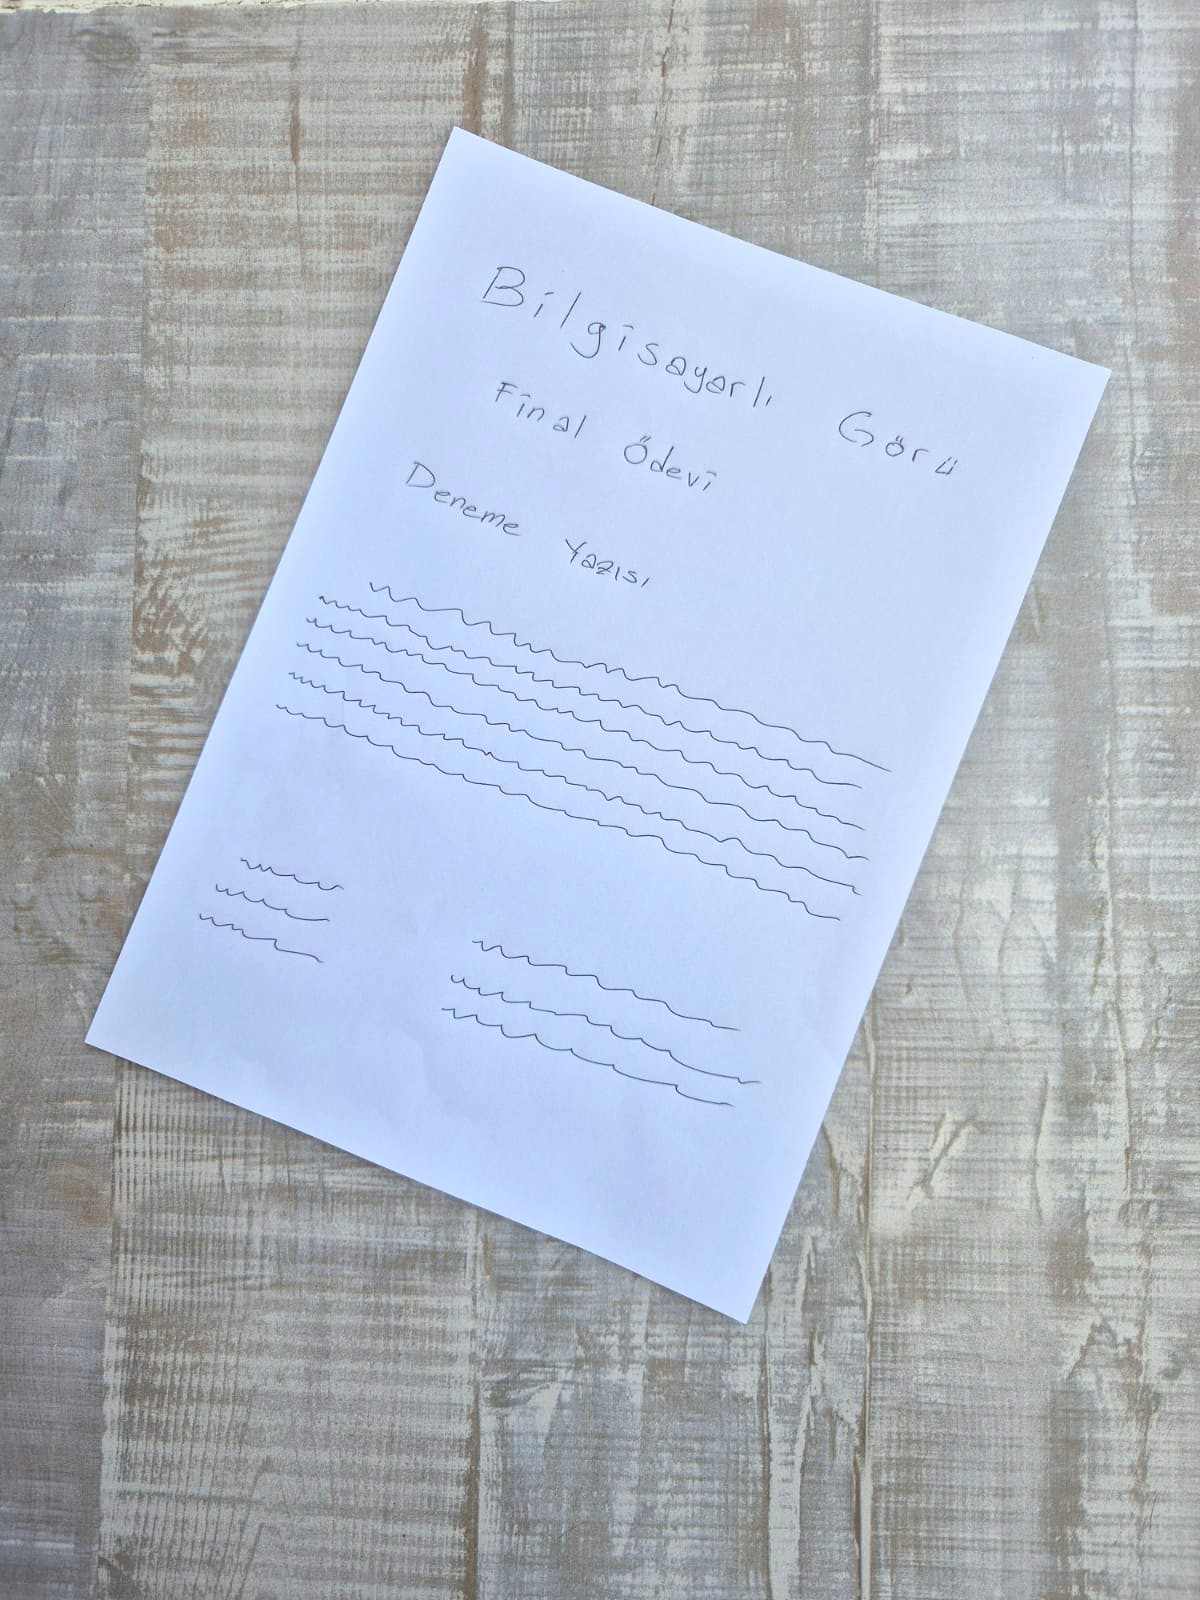 Bilgisayarlı Görü
Final Ödevi
Deneme Yazısı